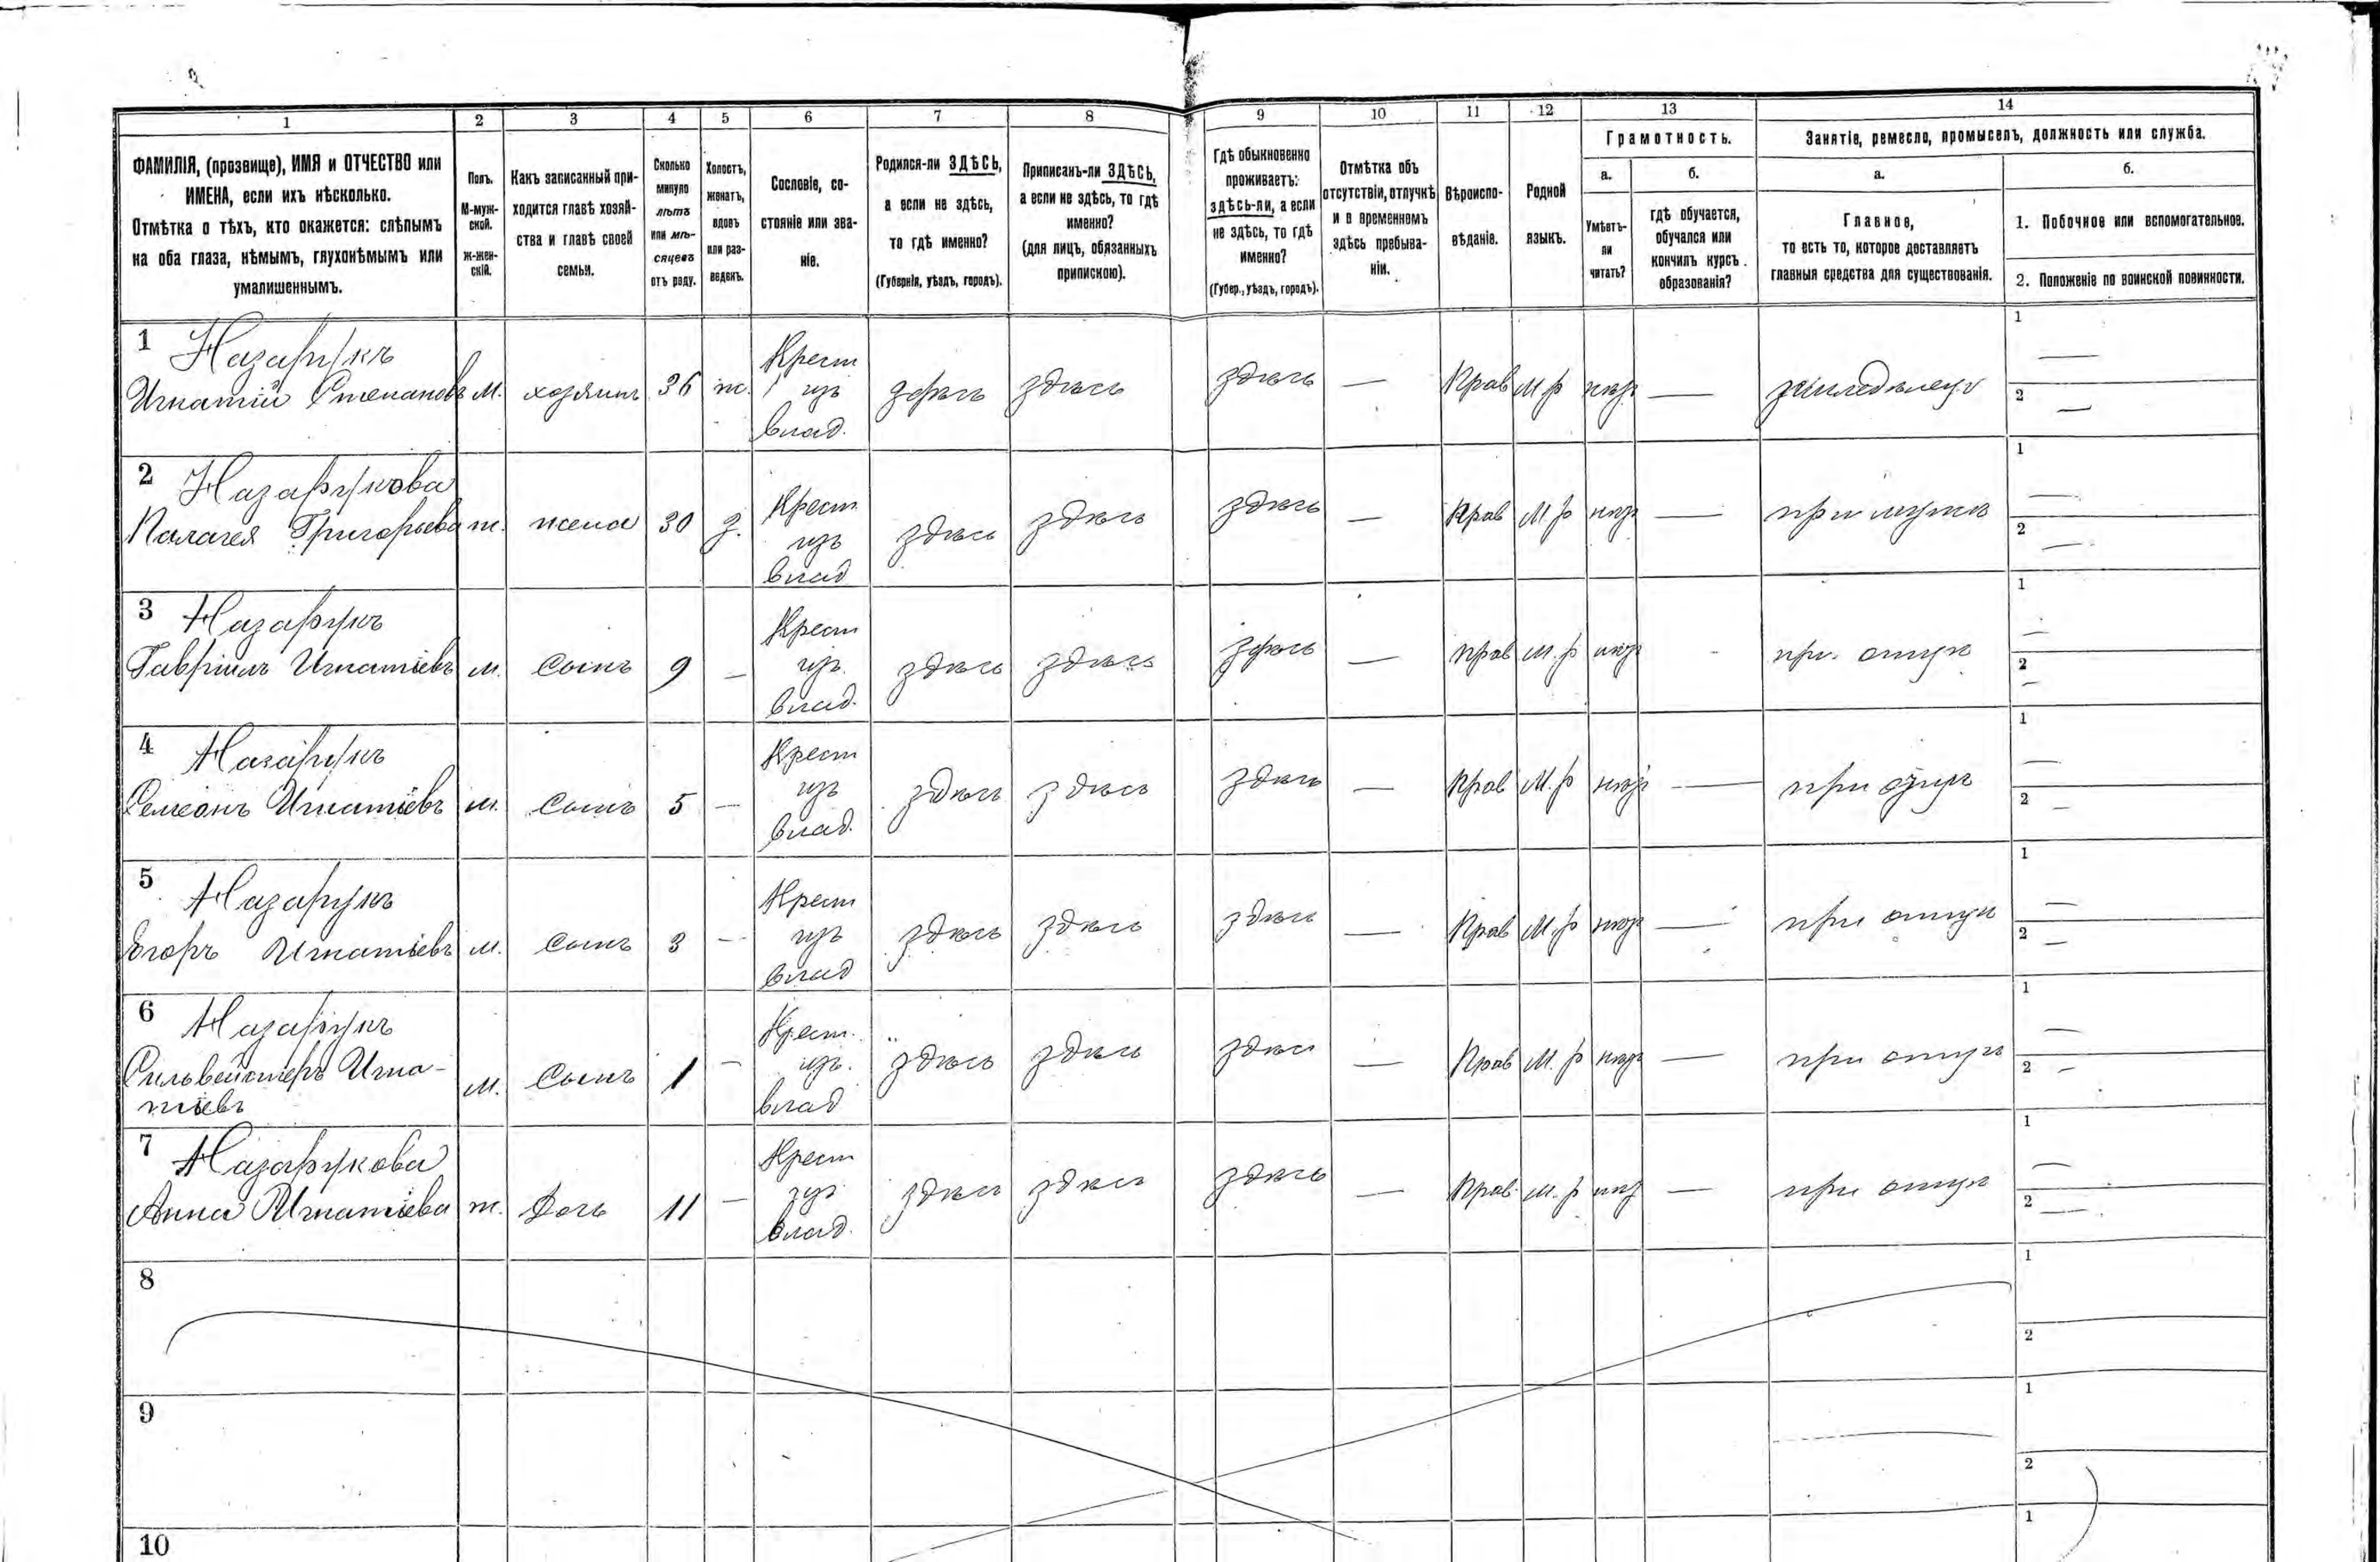 1 2 3 4 5 6 7 8 9 10 11 12 13 14
ФАМИЛІЯ, (прозвище), ИМЯ и ОТЧЕСТВО или
ИМЕНА, если ихъ нѣсколько.
Отмѣтка о тѣхъ, кто окажется: слѣпымъ
на оба глаза, нѣмымъ, глухонѣмымъ или
умалишеннымъ.
Полъ.
М-муж-
ской.
Ж-жен-
скій.
Какъ записанный при-
ходится главѣ хозяй-
ства и главѣ своей
семьи.
Сколько
минуло
лѣтъ
или мѣ-
сяцевъ
отъ роду.
Холостъ,
женатъ,
вдовъ
или раз-
веденъ.
Сословіе, со-
стояніе или зва-
ніе.
Родился-ли ЗДѢСЬ,
а если не здѣсь,
то гдѣ именно?
(Губернія, уѣздъ, городъ).
Приписанъ-ли ЗДѢСЬ,
а если не здѣсь, то гдѣ
именно?
(для лицъ, обязанныхъ
припискою).
Гдѣ обыкновенно
проживаетъ:
здѣсь-ли, а если
не здѣсь, то гдѣ
именно?
(Губер., уѣздъ, городъ).
Отмѣтка объ
отсутствіи, отлучкѣ
и о временномъ
здѣсь пребыва-
ніи.
Вѣроиспо-
вѣданіе.
Родной
языкъ.
Грамотность.
а.
Умѣетъ-
ли
читать?
б.
гдѣ обучается,
обучался или
кончилъ курсъ
образованія?
Занятіе, ремесло, промыселъ, должность или служба.
а.
Главное,
то есть то, которое доставляетъ
главныя средства для существованія.
б.
1. Побочное или вспомогательное.
2. Положеніе по воинской повинности.
1 Назарукъ
Игнатій Степановъ м. хозяинъ 36 ж. Крест изъ влад. здѣсь здѣсь здѣсь — Прав М р нѣтъ — земледѣлецъ 1 — 2 —
2 Назарукова
Палагея Григорьева ж. жена 30 з. Крест изъ влад здѣсь здѣсь здѣсь — Прав М р нѣтъ — при мужѣ 1 — 2 —
3 Назарукъ
Гавріилъ Игнатіевъ м. сынъ 9 — Крест изъ влад. здѣсь здѣсь здѣсь — прав м. р нѣтъ - при отцѣ 1 — 2 —
4 Назарукъ
Семеонъ Игнатіевъ м. сынъ 5 — Крест изъ влад. здѣсь здѣсь здѣсь — Прав М. р нѣтъ — при отцѣ 1 — 2 —
5 Назарукъ
Егоръ Игнатіевъ м. сынъ 3 — Крест изъ влад здѣсь здѣсь здѣсь — Прав М. р нѣтъ — при отцѣ 1 — 2 —
6 Назарукъ
Сильвейстеръ Игна-
тіевъ м. Сынъ 1 — Крест. изъ. влад здѣсь здѣсь здѣсь — Прав М. р нѣтъ — при отцѣ 1 — 2 —
7 Назарукова
Анна Игнатіева ж. Дочь 11 — Крест изъ влад. здѣсь здѣсь здѣсь — Прав. м. р нѣтъ — при отцѣ 1 — 2 —
8 1
2
9 1
2
10 1